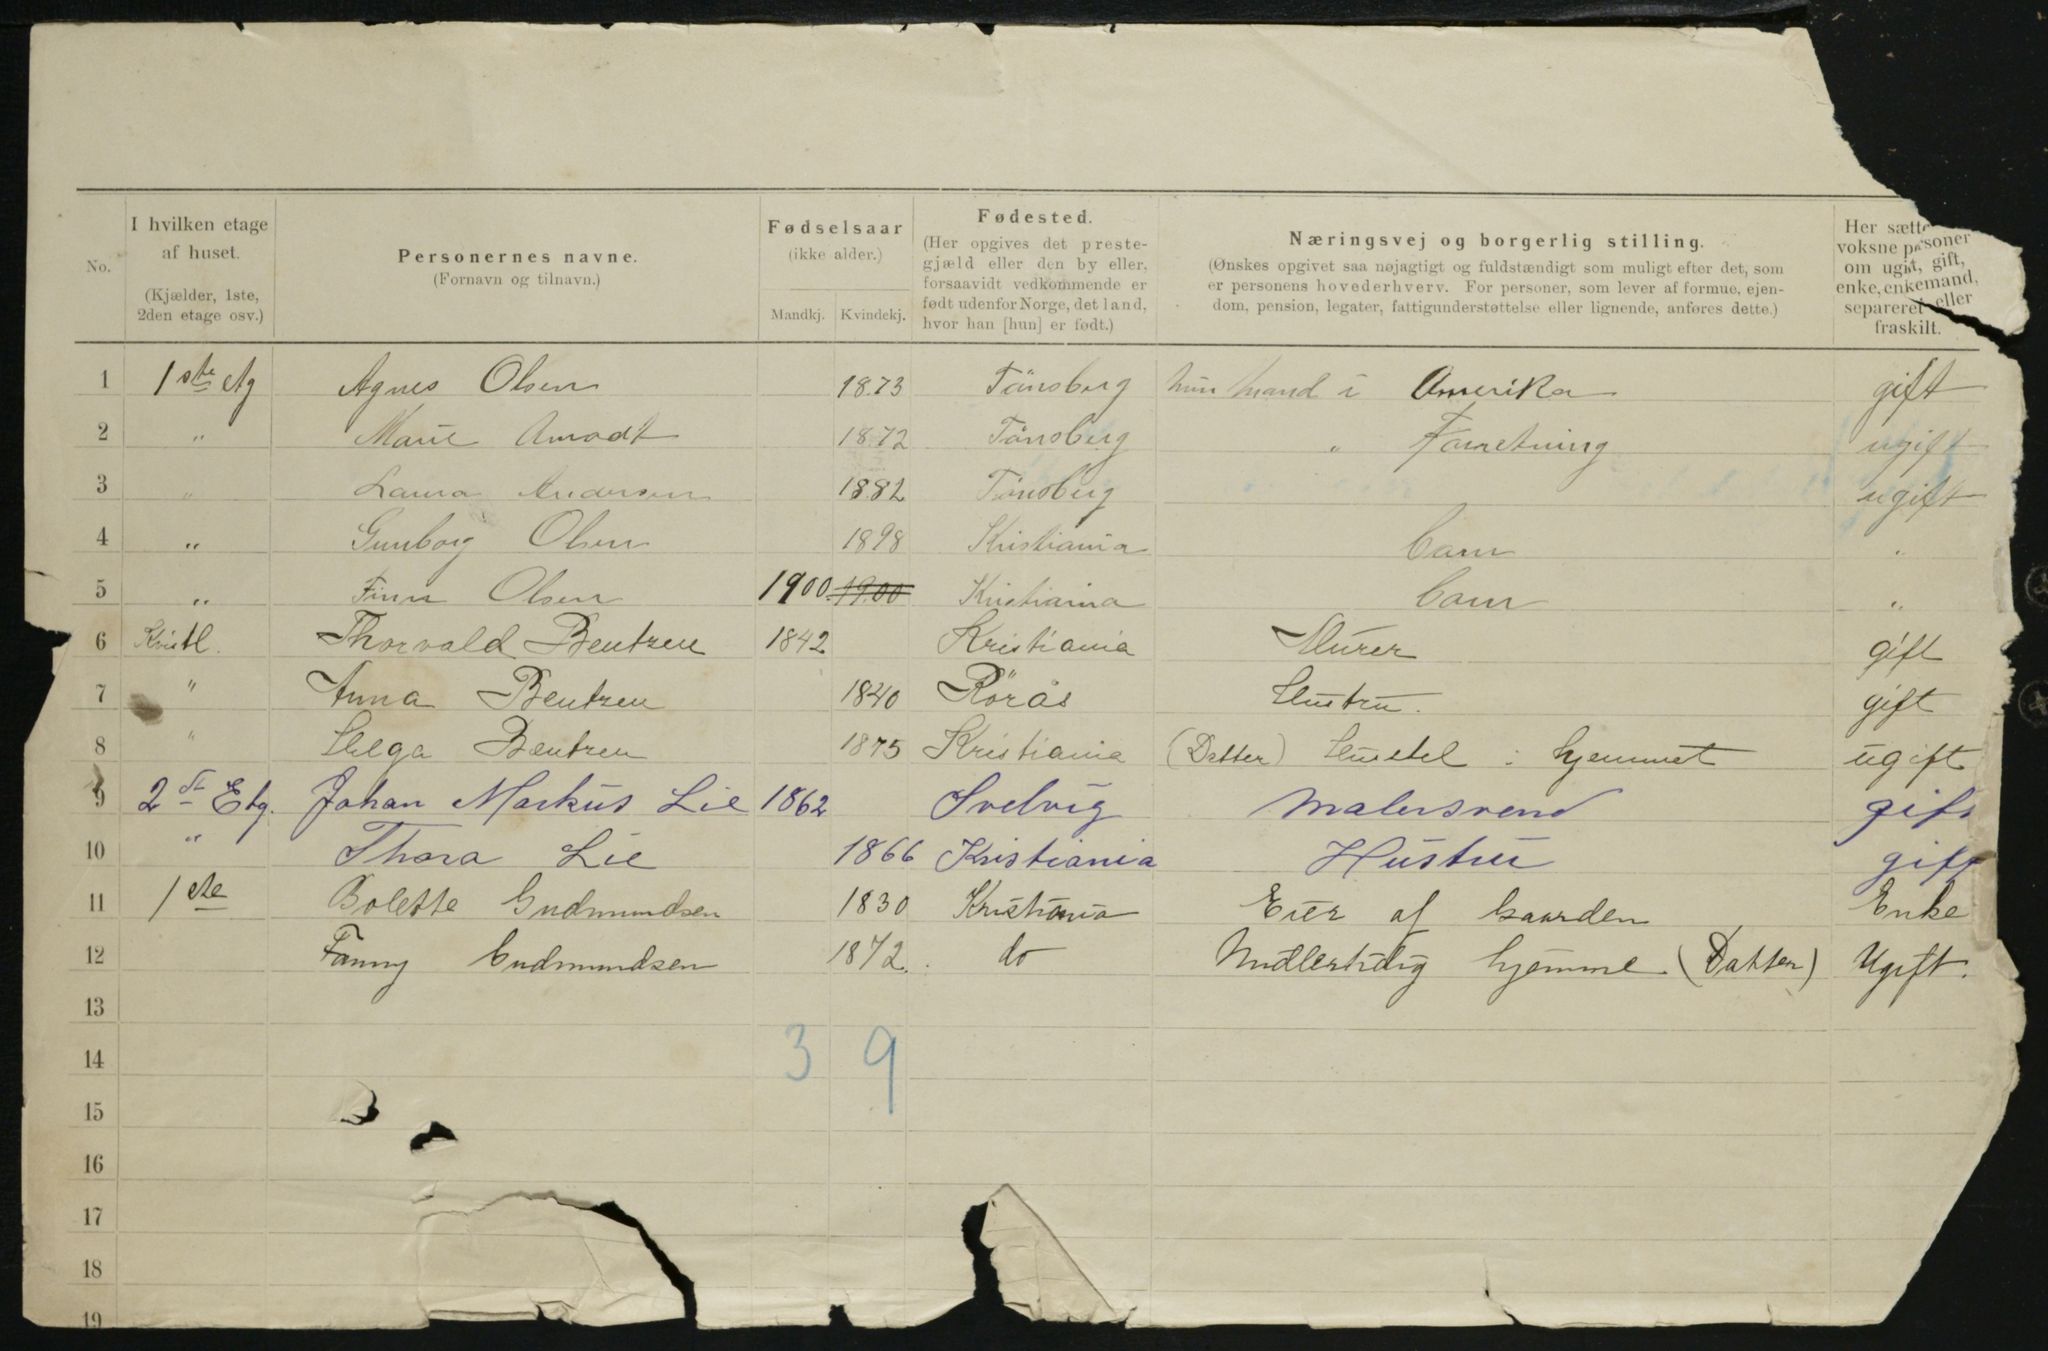 No.
I hvilken etage af huset.
(Kjælder, 1ste, 2den etage osv.)
Personernes navne.
(Fornavn og tilnavn.)
Fødselsaar
(ikke alder.)
Mandkj. Kvindekj.
Fødested.
(Her opgives det prestegjæld eller den by eller, forsaavidt vedkommende er født udenfor Norge, det land, hvor han [hun] er født.)
Næringsvej og borgerlig stilling.
(Ønskes opgivet saa nøjagtigt og fuldstændigt som muligt efter det, som er personens hovederhverv. For personer, som lever af formue, ejendom, pension, legater, fattigunderstøttelse eller lignende, anføres dette.)
Her sætte voksne personer om ugift, gift, enke, enkemand, separeret eller fraskilt.
1 1ste Agnes Olsen 1873 Tönsberg mand i Amerika gift
2 " Marie Amodt 1872 Tönsberg " Forretning ugift
3 " Laura Andersen 1882 Tönsberg ugift
4 " Gunborg Olsen 1898 Kristiania barn "
5 " Finn Olsen 1900 1900 Kristiania barn "
6 Kvistl. Thorvald Bentzen 1842 Kristiania Murer gift
7 " Anna Bentzen 1840 Rörås Hustru. gift
8 " Helga Bentzen 1875 Kristiania (Datter) Hustel i hjemmet ugift
9 2 Etg. Johan Markus Lie 1862 Svelvig Malersvend gift
10 " Thora Lie 1866 Kristiania Hustru gift
11 1ste Bolette Gudmundsen 1830 Kristiania Eier af Gaarden Enke
12 Fanny Gudmundsen 1872. do Midlertidig hjemme (Datter) Ugift.
13
14 3 9
15
16
17
18
19